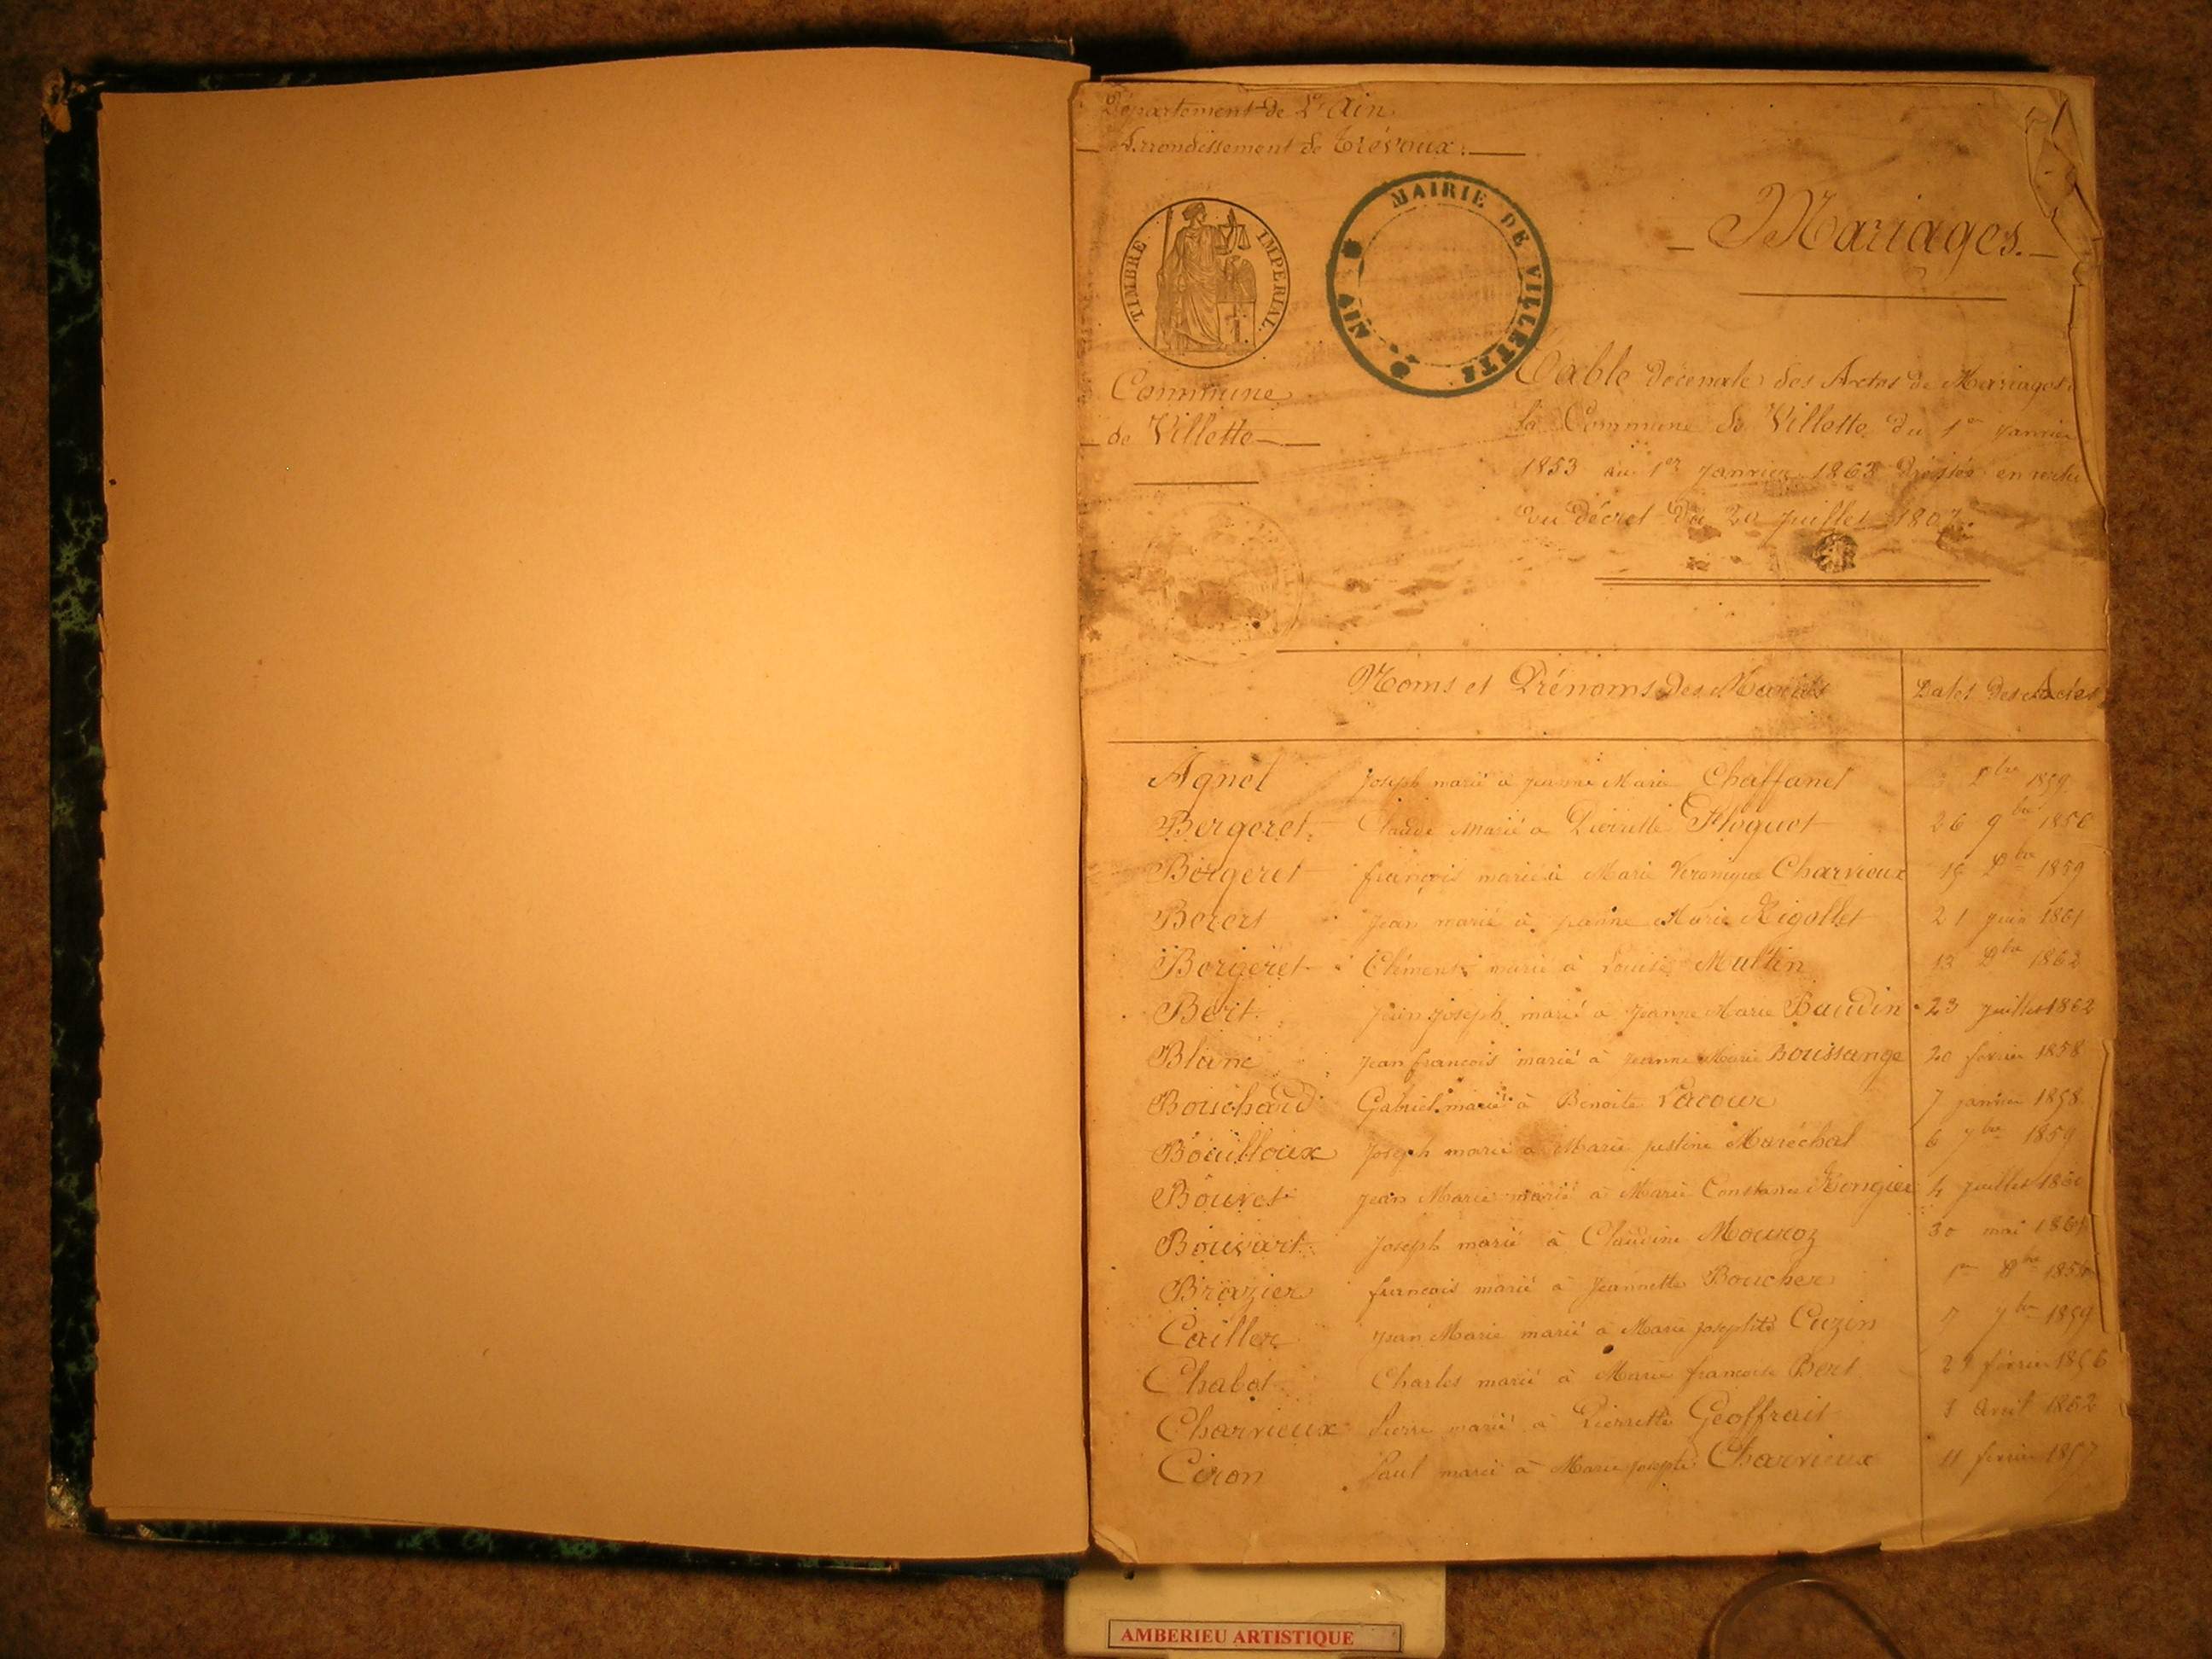 Département de L'Ain
Arrondissement de Trévoux.
MAIRIE DE VILLETTE
AIN
TIMBRE IMPERIAL
Mariages.
Commune
de Villette
Table décennale des Actes de Mariages
la Commune de Villette du 1er Janvier
1853 au 1er Janvier 1863 Dressée en vertu
du décret du 20 Juillet 1807.
Noms et Prénoms des Mariés Dates des Actes
Agnel Joseph marié à Jeanne Marie Chaffanel 1859
Bergeret Claude marié à Pierrette Floquet 26 9bre 1856
Bergeret françois marié à Marie Véronique Charvieux 15 Xbre 1859
Berert Jean marié à Jeanne Marie Rigollet 21 Juin 1861
Bergeret Clément marié à Louise Multin 13 Xbre 1862
Bert Jean Joseph marié à Jeanne Marie Baudin 23 Juillet 1862
Blanc Jean françois marié à Jeanne Marie Boussange 20 février 1858
Bouchard Gabriel marié à Benoite Lacour 7 janvier 1858
Bouilloux Joseph marié à Marie Justine Maréchal 6 7bre 1859
Bouvet Jean Marie marié à Marie Constance Rongier 4 Juillet 1860
Bouvart Joseph marié à Claudine Mouroz 30 mai 1861
Brazier françois marié à Jeannette Boucher 1er
Cailler Jean Marie marié à Marie Josephte Cuzin 7 7bre 1859
Chabot Charles marié à Marie françoise Bert février 1856
Charvieux Pierre marié à Pierrette Geoffrait 3 Avril 1862
Ciron Paul marié à Marie Josephte Charvieux 11 février 1857
AMBERIEU ARTISTIQUE